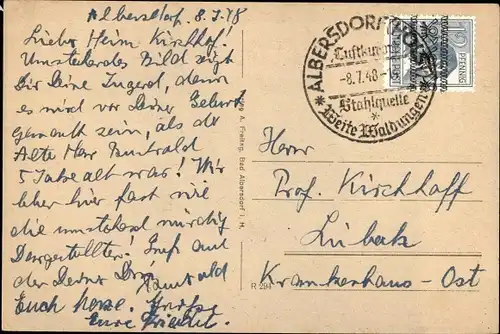 Albersdorf. 8.7.48
Lieber Heim Kirchhof!
Umstehendes Bild zeigt
Dir Deine Jugend, denn
es wird vor Deiner Geburt
gemacht sein, als der
Alte Herr
5 Jahre alt war! Wir
leben hier fast wie
die umstehend
Dargestellten! Gruß auf
der Deine
Euch herzl. Grüße
Eure
ALBERSDORF (HOLST)
Luftkurort
-8.7.48-
Stahlquelle
*
* Weite Waldungen *
PFENNIG
A. Freitag, Bad Albersdorf i. H.
R 291
Herrn
Prof. Kirchhoff
Lübeck
Krankenhaus-Ost